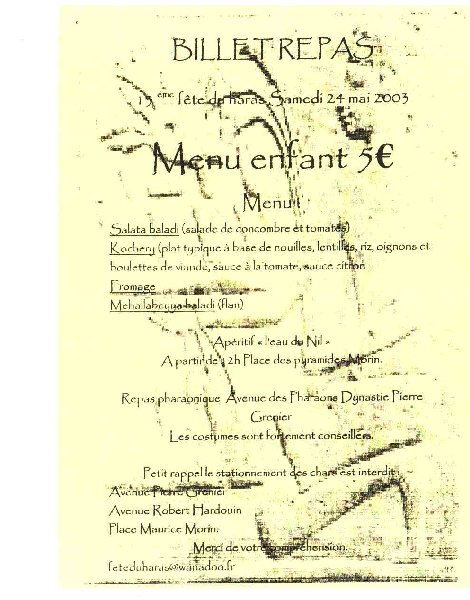 BILLET REPAS
15 ème fête du haras Samedi 24 mai 2003
Menu enfant 5€
Menu :
Salata baladi (salade de concombre et tomates)
Kochery (plat typique à base de nouilles, lentilles, riz, oignons et
boulettes de viande, sauce à la tomate, sauce citron
Fromage
Mehallabeyya baladi (flan)
Apéritif « l'eau du Nil »
A partir de 12h Place des pyramides Morin.
Repas pharaonique Avenue des Pharaons Dynastie Pierre
Grenier
Les costumes sont fortement conseillés.
Petit rappel le stationnement des chars est interdit
Avenue Pierre Grenier
Avenue Robert Hardouin
Place Maurice Morin.
Merci de votre compréhension.
feteduharas@wanadoo.fr